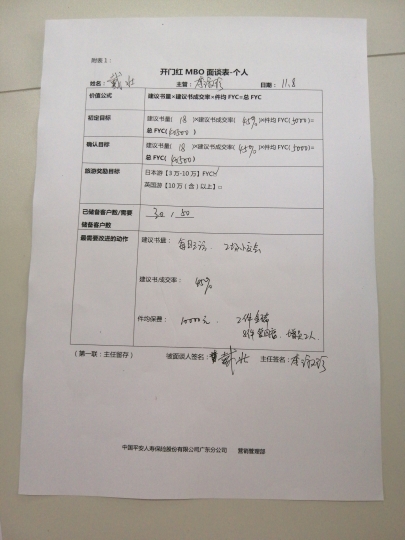 附表 1：
开门红 MBO 面谈表-个人
姓名： 戴壮 主管： 日期： 11.8
价值公式 建议书量×建议书成交率×件均 FYC=总 FYC
初定目标 建议书量( 18 )×建议书成交率( 45% )×件均 FYC( 5000 )=
总 FYC( 40500 )
确认目标 建议书量( 18 )×建议书成交率( 45% )×件均 FYC( 5000 )=
总 FYC( 40500 )
旅游奖励目标 日本游【3 万-10 万】FYC√
英国游【10 万（含）以上】□
已储备客户数/需要 30 / 50
储备客户数
最需要改进的动作 建议书量： 每日三访、
建议书/成交率： 45%
件均保费： 10000元、 2件
增员2人
（第一联：主任留存） 被面谈人签名： 戴壮 主任签名：
中国平安人寿保险股份有限公司广东分公司 营销管理部